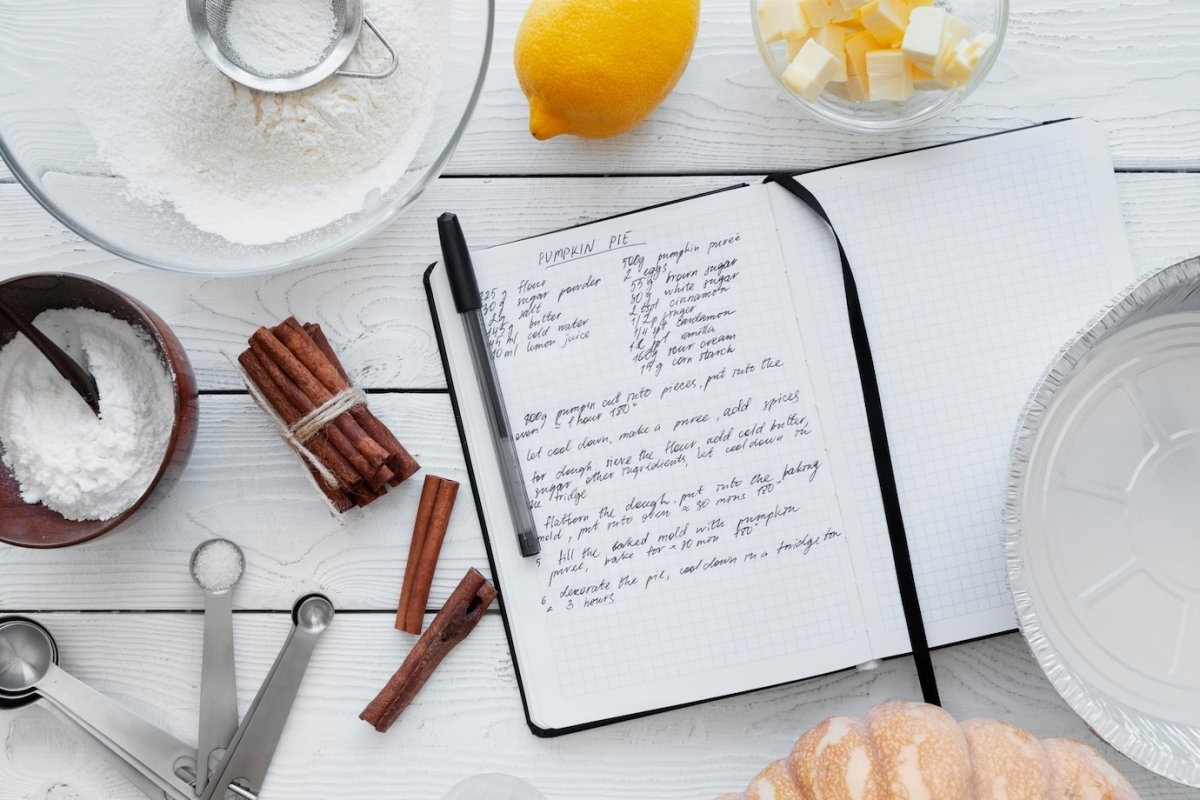 PUMPKIN PIE
225 g flour
30 g sugar powder
2g salt
145g butter
45 ml cold water
10 ml lemon juice
500g pumpkin pureé
2 eggs
55g brown sugar
80g white sugar
2 tspl cinnamon
1/2 p ginger
1/4 spt cardamon
spt vanilla
160g sour cream
15g corn starch
800g pumpin cut into pieces, put into the
oven ≈ 1 hour 180°
let cool down, make a puree, add spices
for dough, sieve the flour, add cold butter,
sugar, other ingredients, let cool down in
the fridge
flattern the dough, put into the baking
mold, put into oven ≈ 30 mins 180°
5 fill the baked mold with pumpkin
puree, bake for ≈ 30 min 180°
6 decorate the pie, cool down in a fridge for
≈ 3 hours